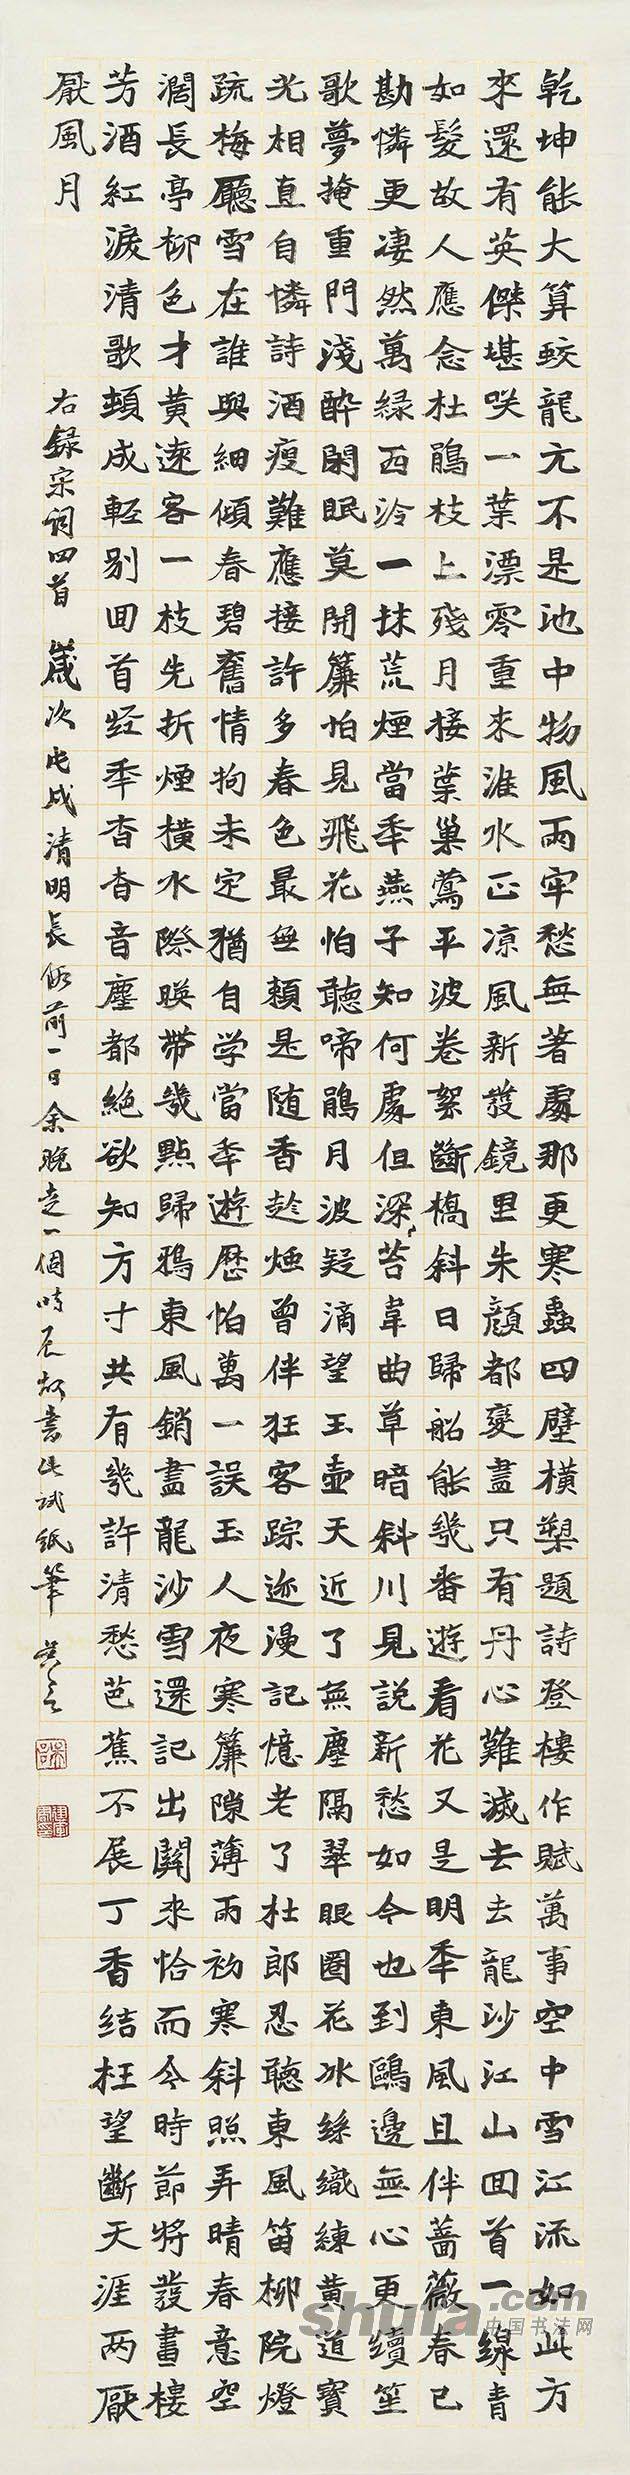 乾坤能大算蛟龍元不是池中物風雨牢愁無著處那更寒蟲四壁橫槊題詩登樓作賦萬事空中雪江流如此方
來還有英傑堪咲一葉漂零重來淮水正凉風新發鏡里朱顏都變盡只有丹心難滅去去龍沙江山回首一線青
如髮故人應念杜鵑枝上殘月接葉巢鶯平波卷絮斷橋斜日歸船能幾番遊看花又是明年東風且伴薔薇春已
勘憐更凄然萬緑西泠一抹荒煙當年燕子知何處但深苔韋曲草暗斜川見說新愁如今也到鷗邊無心更續笙
歌夢掩重門淺醉閑眠莫開簾怕見飛花怕聽啼鵑月波疑滴望玉壺天近了無塵隔翠眼圈花冰絲織練黃道寶
光相直自憐詩酒瘦難應接許多春色最無賴是随香趁燭曾伴狂客踪迹漫記憶老了杜郎忍聽東風笛柳院燈
疏梅廳雪在誰與細傾春碧舊情拘未定猶自学當年遊歷怕萬一誤玉人夜寒簾隙薄雨初寒斜照弄晴春意空
濶長亭柳色才黃遠客一枝先折煙橫水際映帶幾點歸鴉東風銷盡龍沙雪還記出關來恰而今時節將發畫樓
芳酒紅淚清歌頓成輕別回首經年杳杳音塵都絕欲知方寸共有幾許清愁芭蕉不展丁香結枉望斷天涯两厭
厭風月
右録宋詞四首 歲次戊戌清明長假前一日余晚走一個時辰書此試紙筆
shufa.com
中国书法网